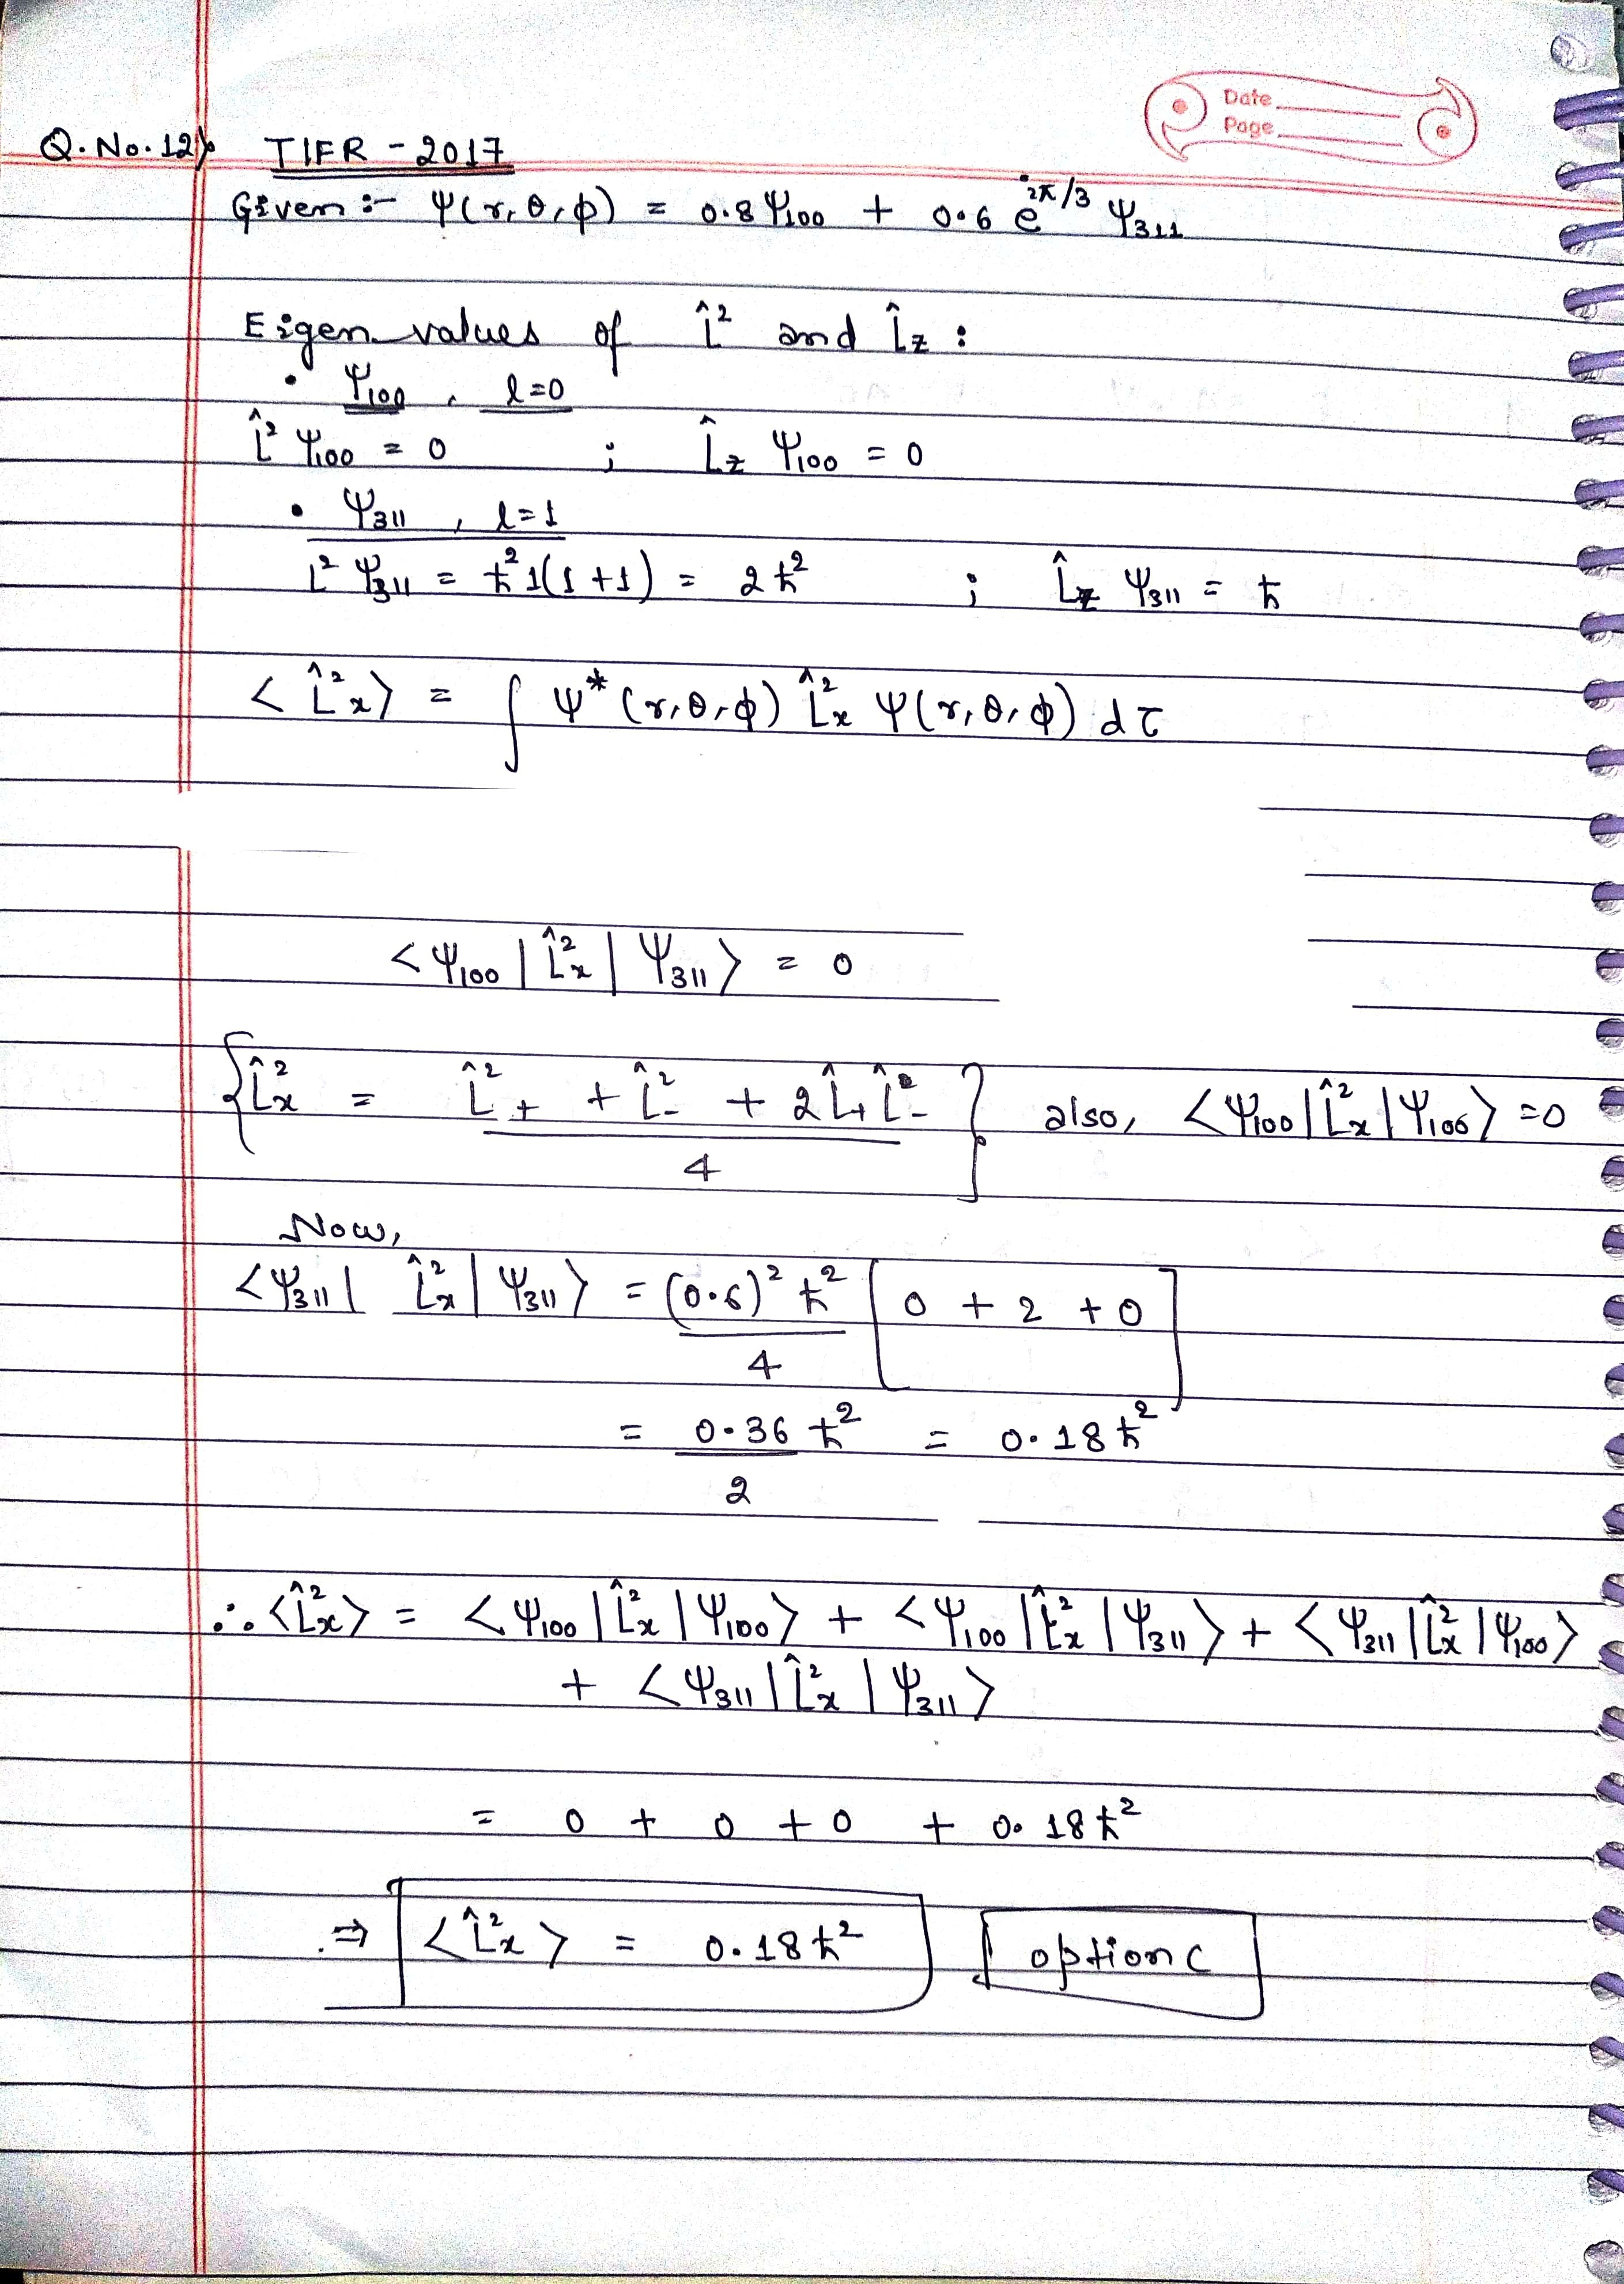 Date
Page
Q. No. 12) TIFR - 2017
Given :- Ψ(r, θ, φ) = 0.8 Ψ100 + 0.6 e^iπ/3 Ψ311
Eigen values of L̂² and L̂z :
• Ψ100 , l=0
L̂² Ψ100 = 0 ; L̂z Ψ100 = 0
• Ψ311 , l=1
L² Ψ311 = ħ² 1(1+1) = 2ħ² ; L̂z Ψ311 = ħ
< L̂²x > = ∫ Ψ* (r, θ, φ) L̂²x Ψ(r, θ, φ) dτ
< Ψ100 | L̂²x | Ψ311 > = 0
{ L̂²x = (L̂²+ + L̂²- + 2 L̂+ L̂-) / 4 } also, < Ψ100 | L̂²x | Ψ100 > = 0
Now,
< Ψ311 | L̂²x | Ψ311 > = (0.6)² ħ² / 4 [ 0 + 2 + 0 ]
= 0.36 ħ² / 2 = 0.18 ħ²
∴ < L̂²x > = < Ψ100 | L̂²x | Ψ100 > + < Ψ100 | L̂²x | Ψ311 > + < Ψ311 | L̂²x | Ψ100 >
+ < Ψ311 | L̂²x | Ψ311 >
= 0 + 0 + 0 + 0.18 ħ²
⇒ < L̂²x > = 0.18 ħ² option C